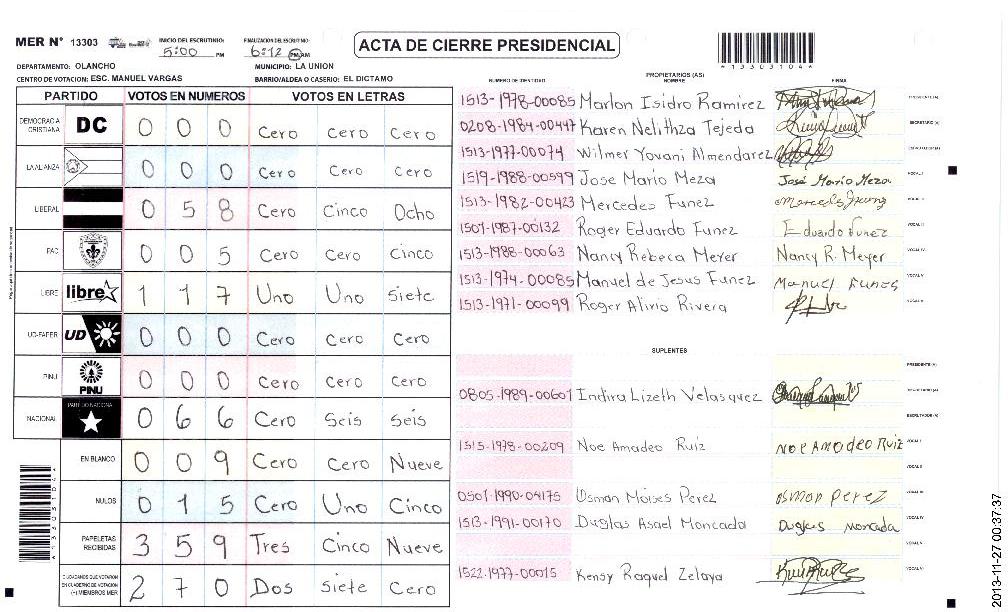 MER N° 13303
INICIO DEL ESCRUTINIO: 5:00 PM
FINALIZACION DEL ESCRUTINIO: 6:12 PM AM
ACTA DE CIERRE PRESIDENCIAL
*13303104*
DEPARTAMENTO: OLANCHO
MUNICIPIO: LA UNION
CENTRO DE VOTACION: ESC. MANUEL VARGAS
BARRIO/ALDEA O CASERIO: EL DICTAMO
PARTIDO VOTOS EN NUMEROS VOTOS EN LETRAS
DEMOCRACIA CRISTIANA DC 0 0 0 Cero Cero Cero
LA ALIANZA 0 0 0 Cero Cero Cero
LIBERAL 0 5 8 Cero Cinco Ocho
PAC 0 0 5 Cero Cero Cinco
LIBRE libre 1 1 7 Uno Uno Siete
UD-FAPER UD 0 0 0 Cero Cero Cero
PINU PINU 0 0 0 Cero Cero Cero
NACIONAL PARTIDO NACIONAL 0 6 6 Cero Seis Seis
EN BLANCO 0 0 9 Cero Cero Nueve
NULOS 0 1 5 Cero Uno Cinco
PAPELETAS RECIBIDAS 3 5 9 Tres Cinco Nueve
CIUDADANOS QUE VOTARON EN CUADERNO DE VOTACION (+) MIEMBROS MER 2 7 0 Dos Siete Cero
*13303104*
PROPIETARIOS (AS)
NUMERO DE IDENTIDAD NOMBRE FIRMA
1513-1978-00085 Marlon Isidro Ramirez PRESIDENTE (A)
0208-1984-00447 Karen Nelithza Tejeda SECRETARIO (A)
1513-1977-00074 Wilmer Yovani Almendarez ESCRUTADOR (A)
1519-1988-00599 Jose Mario Meza José Mario Meza VOCAL I
1513-1982-00423 Mercedes Funez VOCAL II
1501-1987-00132 Roger Eduardo Funez Eduardo Funez VOCAL III
1513-1988-00063 Nancy Rebeca Meyer Nancy R. Meyer VOCAL IV
1513-1974-00085 Manuel de Jesus Funez Manuel Funes VOCAL V
1513-1971-00099 Roger Alirio Rivera VOCAL VI
SUPLENTES
PRESIDENTE (A)
0805-1989-00601 Indira Lizeth Velasquez SECRETARIO (A)
ESCRUTADOR (A)
1515-1978-00209 Noe Amadeo Ruiz NOE AMADEO RUIZ VOCAL I
VOCAL II
0501-1990-04175 Osman Moises Perez osman perez VOCAL III
1513-1991-00170 Duglas Asael Moncada Duglas Moncada VOCAL IV
VOCAL V
1522-1977-00015 Kensy Raquel Zelaya VOCAL VI
2013-11-27 00:37:37